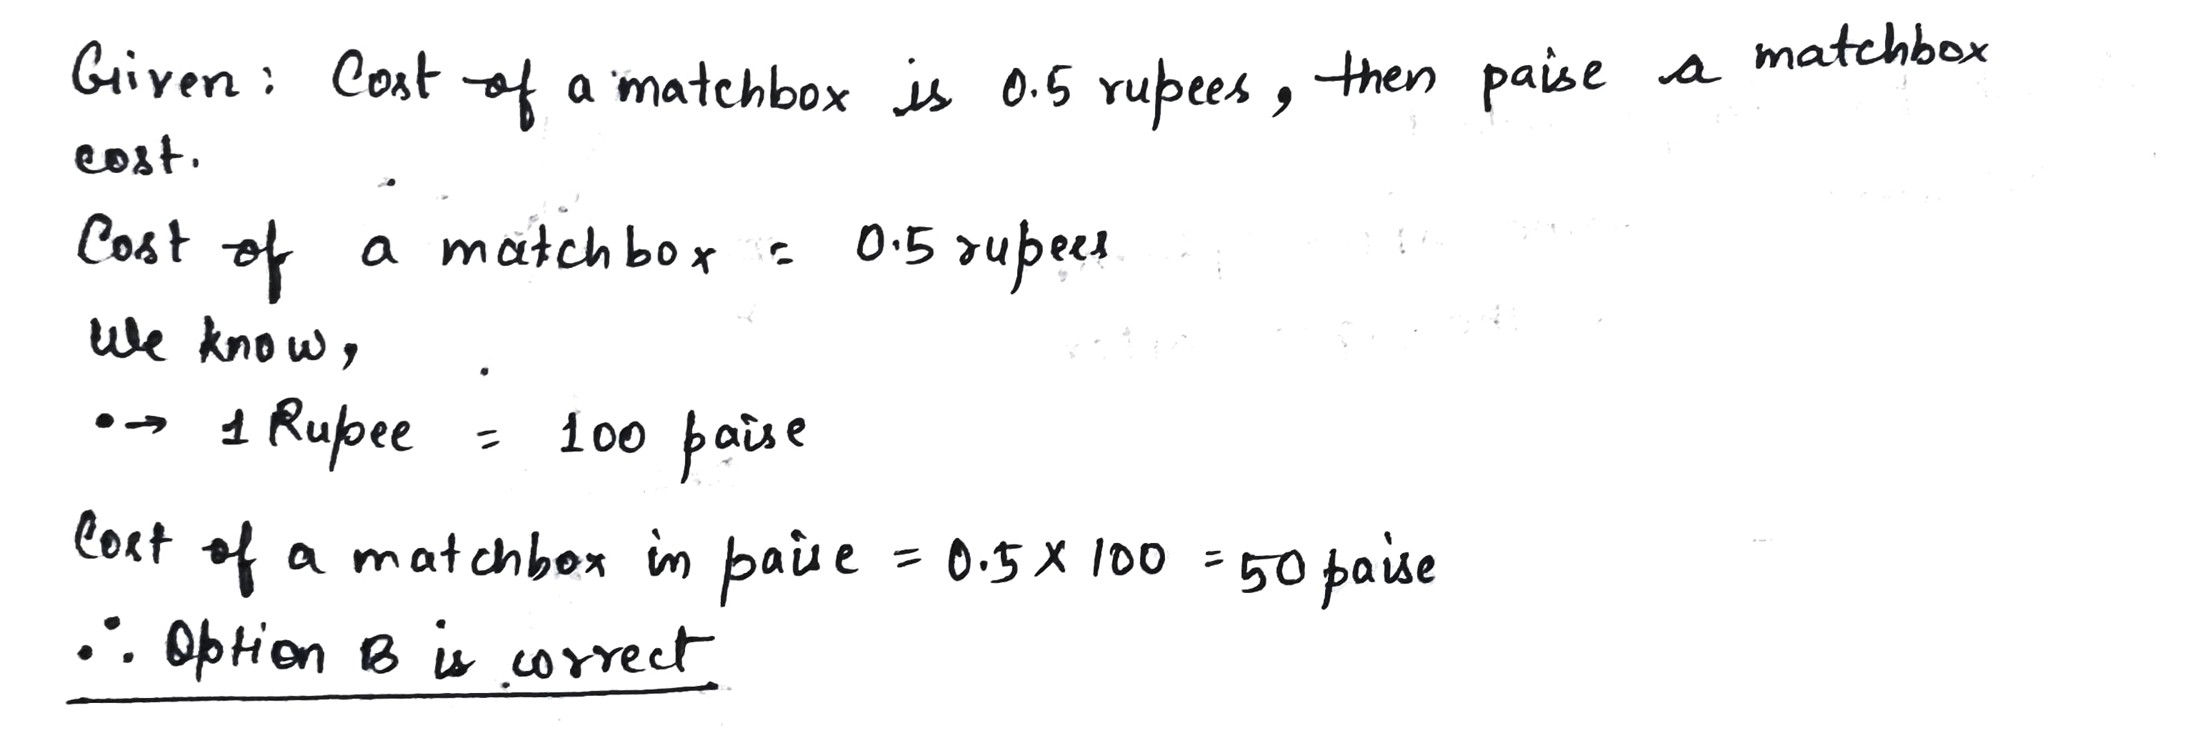 Given: Cost of a matchbox is 0.5 rupees, then paise a matchbox
cost.
Cost of a matchbox = 0.5 rupees
We know,
•→ 1 Rupee = 100 paise
Cost of a matchbox in paise = 0.5 X 100 = 50 paise
∴ Option B is correct